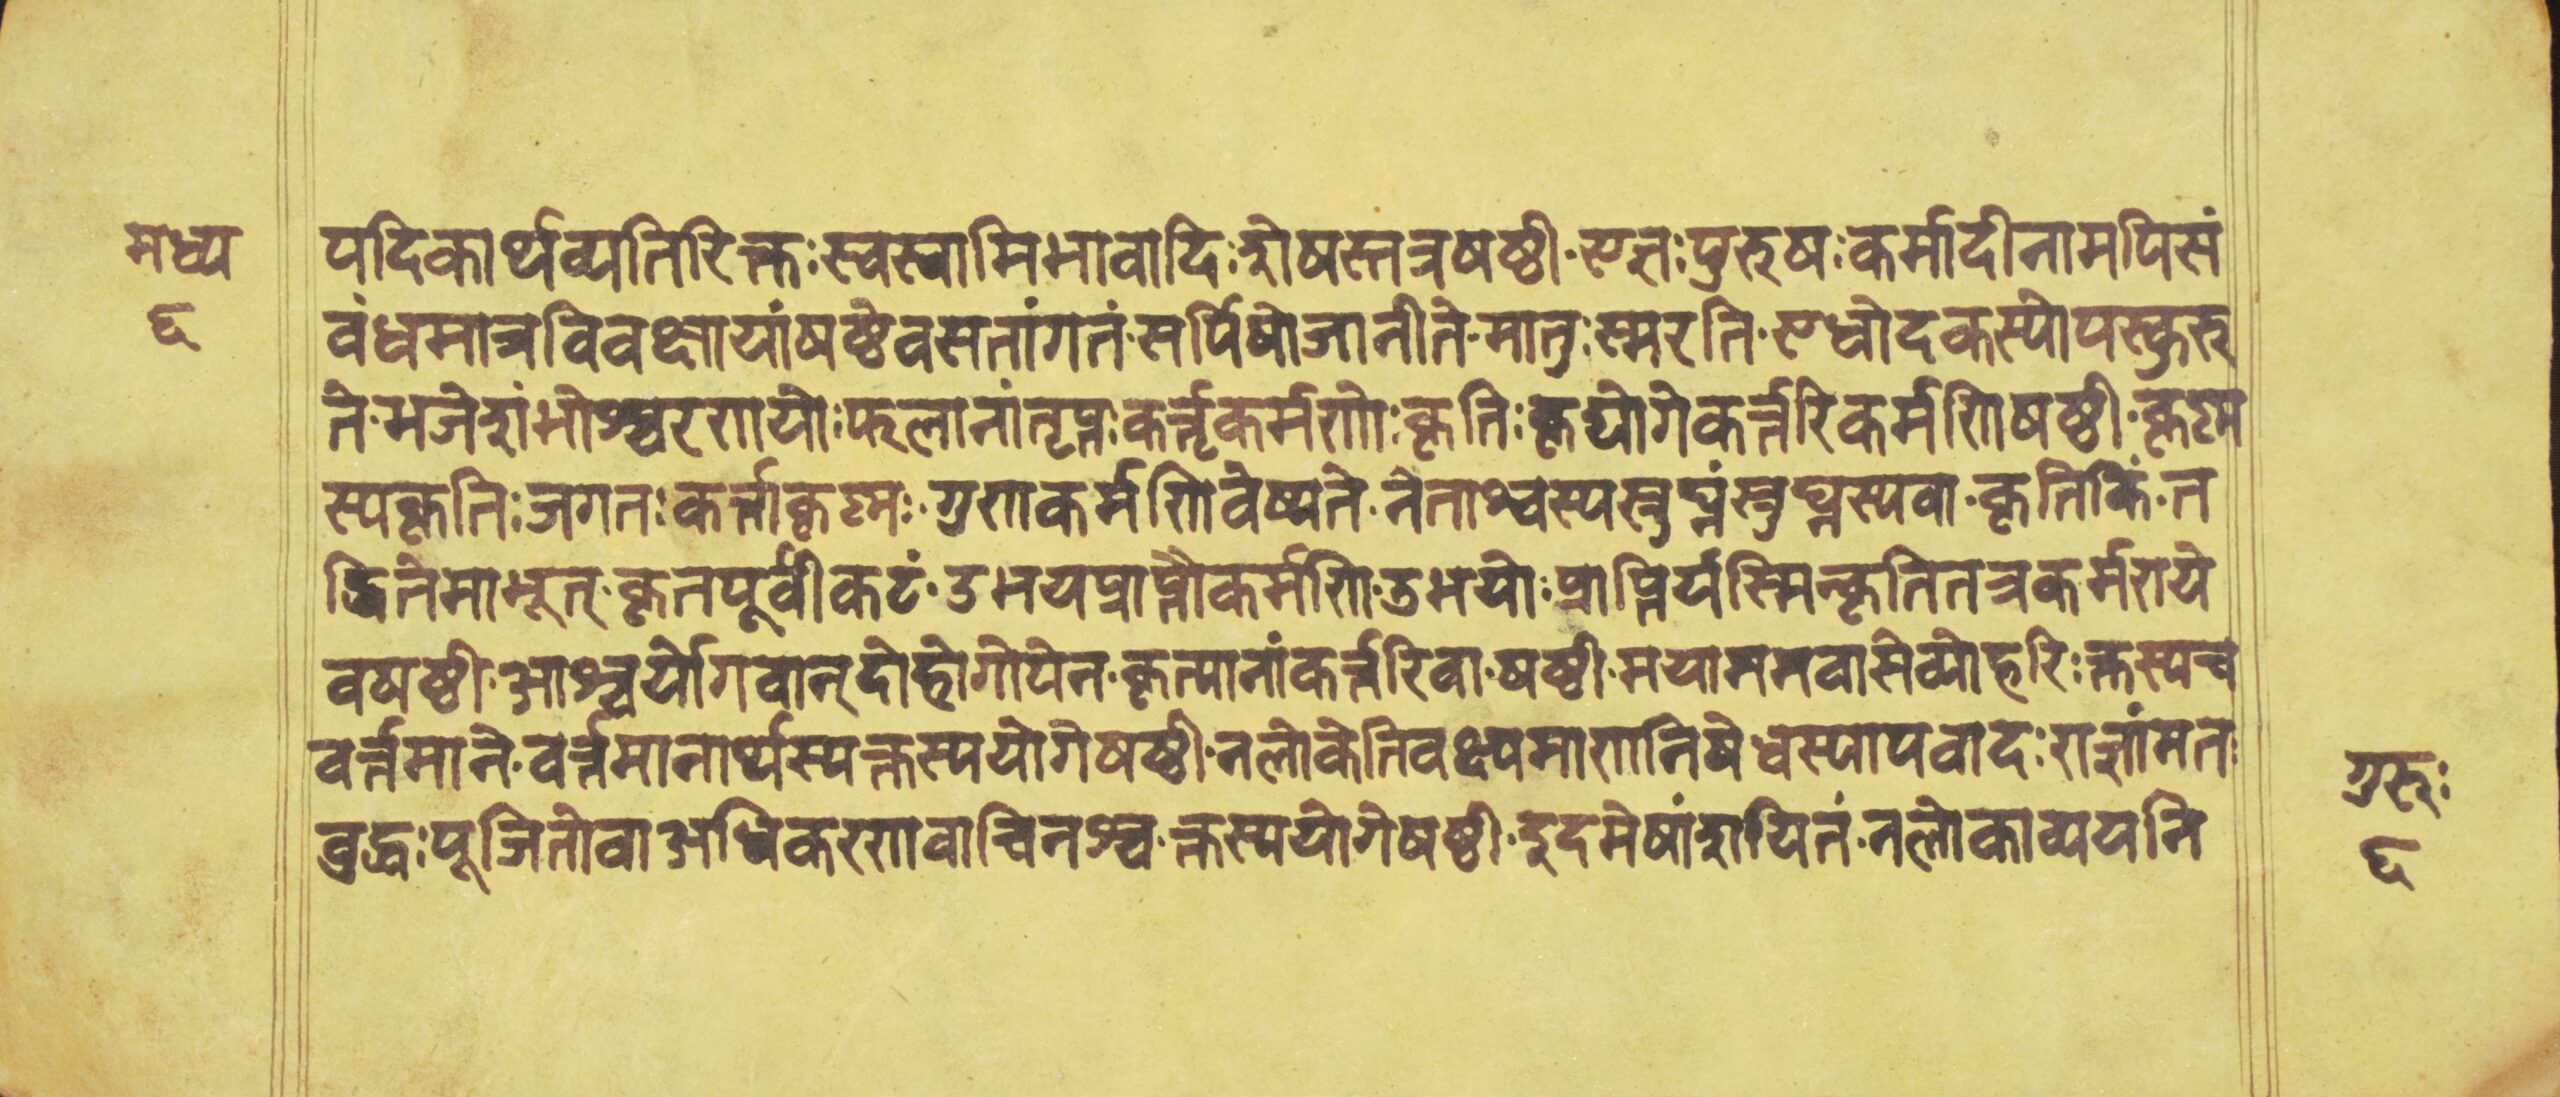 मध्य
६
पदिकार्थव्यतिरिक्तःस्वस्वामिभावादिःशेषस्तत्रषष्ठी·राज्ञःपुरुषःकर्मादीनामपिसं
वंधमात्रविवक्षायांषष्ठेवसतांगतं·सर्पिषोजानीते·मातुःस्मरति·एधोदकस्योपस्कुरु
ते·भजेशंभोश्चरणयोःफलानांतृप्तःकर्त्तृकर्मणोःकृतिःकृद्योगेकर्त्तरिकर्मणिषष्ठी·कृष्ण
स्यकृतिःजगतःकर्त्ताकृष्णः·गुणकर्मणिवेष्यते·नेताश्वस्यस्रुघ्नंस्रुघ्नस्यवा·कृतिकिं·त
द्धितेमाभूत्·कृतपूर्वीकटं·उभयप्राप्तौकर्मणि·उभयोःप्राप्तिर्यस्मिन्कृतितत्रकर्मण्ये
वषष्ठी·आश्चर्योगवान्दोहोगोपेन·कृत्यानांकर्त्तरिवा·षष्ठी·मयाममवासेव्योहरिःक्तस्यच
वर्त्तमाने·वर्त्तमानार्थस्यक्तस्ययोगेषष्ठी·नलोकेतिवक्ष्यमाणनिषेधस्यापवादःराज्ञांमतः
वुद्धःपूजितोवाअधिकरणवाचिनश्च·क्तस्ययोगेषष्ठी·इदमेषांशयितं·नलोकाव्ययनि
गुरुः
६